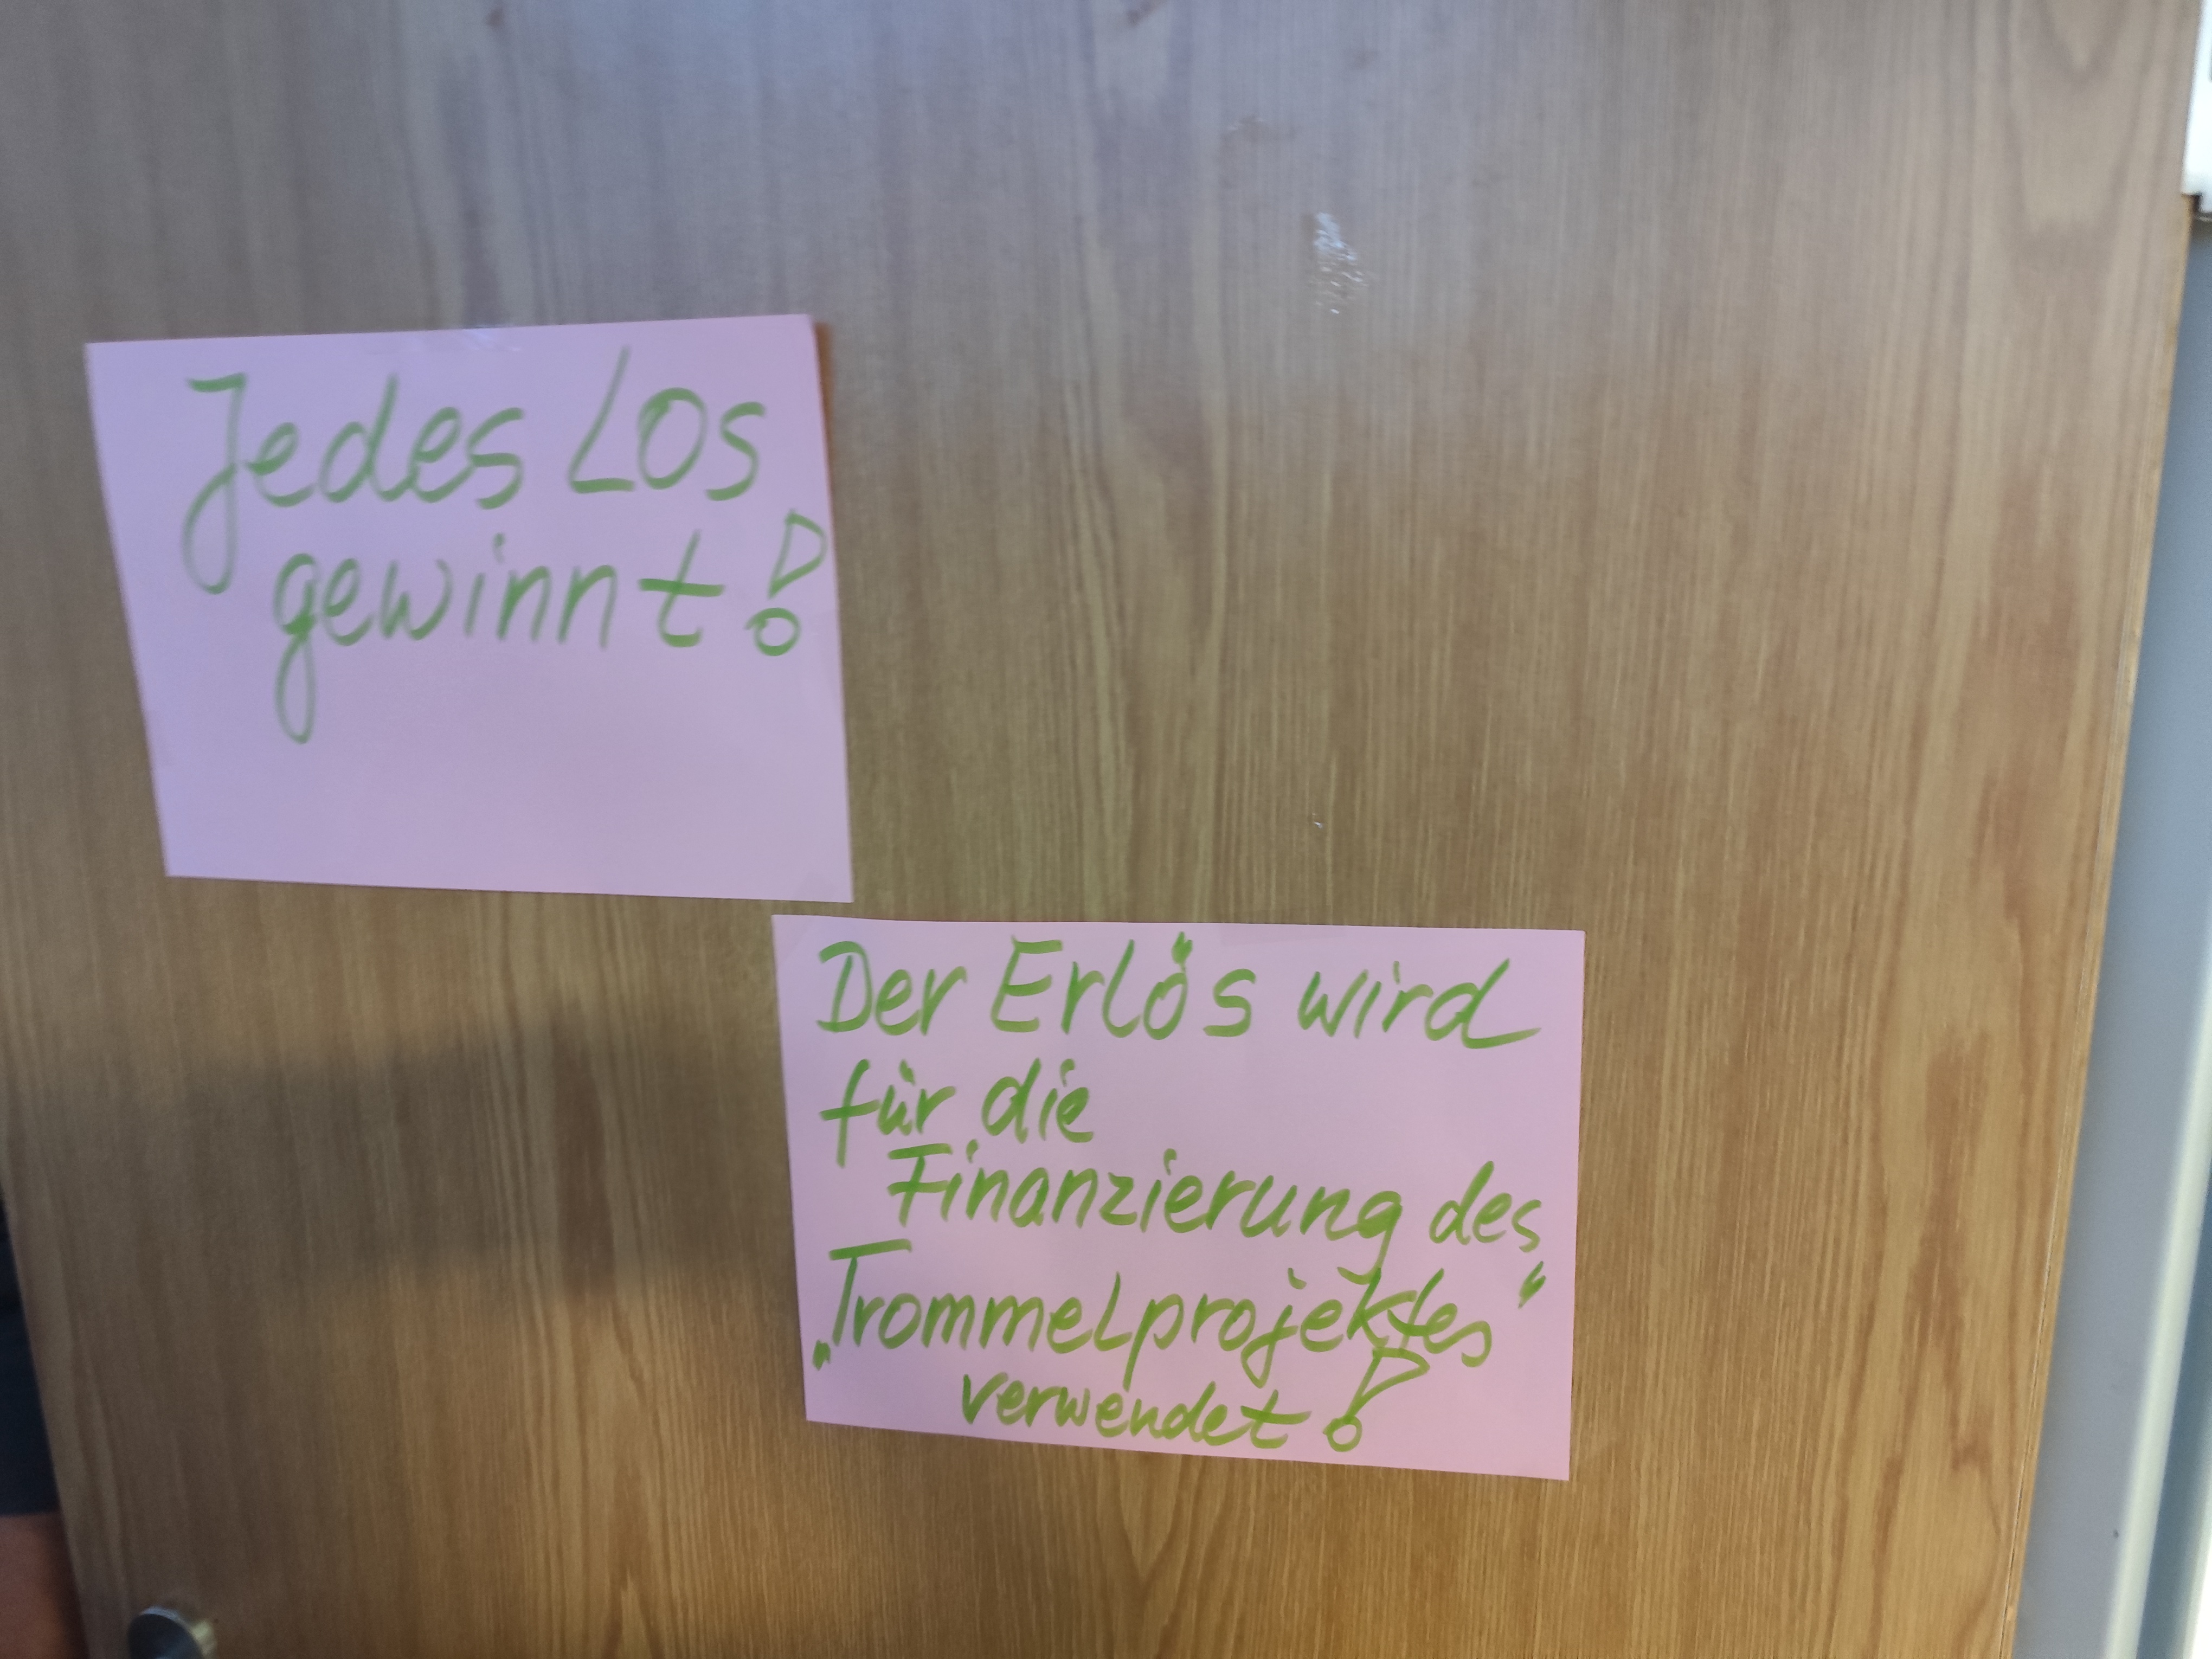 Jedes Los
gewinnt!
Der Erlös wird
für die
Finanzierung des
„Trommelprojektes“
verwendet!